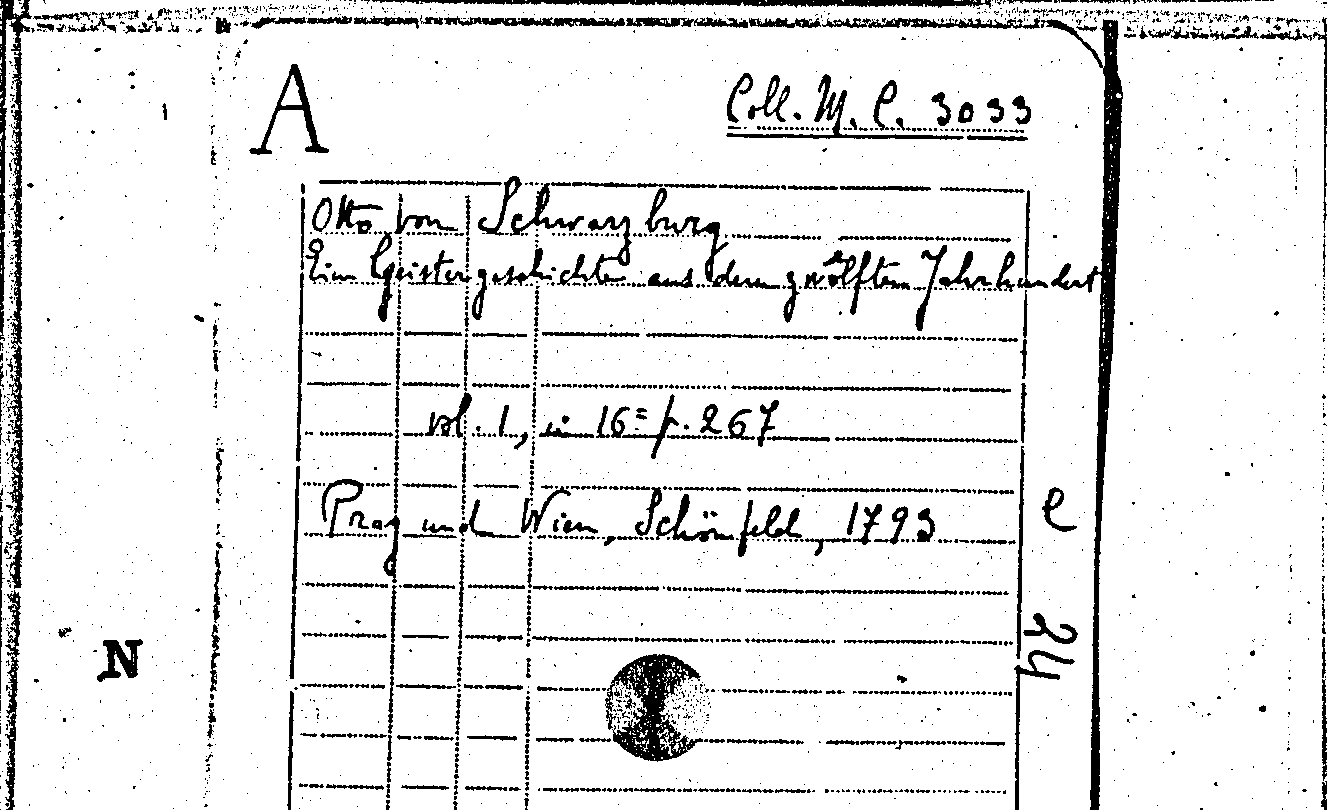 A
Coll. M. C. 3033
Otto von Schwarzburg
Eine Geistergeschichte aus dem zwölften Jahrhundert
vol. 1, in 16= p. 267
Prag und Wien, Schönfeld, 1793
e
24
N